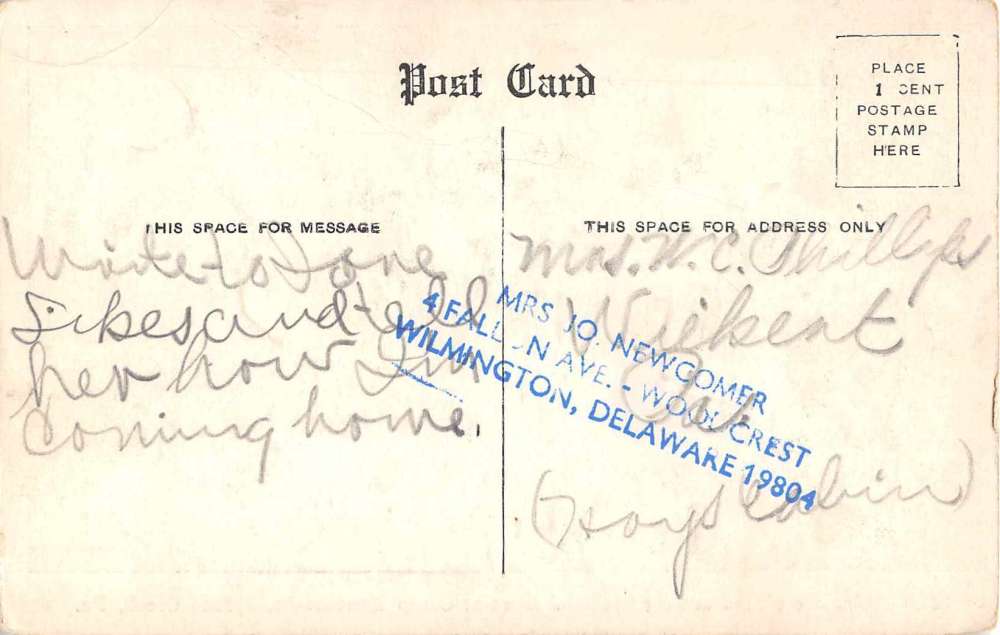 Post Card
PLACE
1 CENT
POSTAGE
STAMP
HERE
THIS SPACE FOR MESSAGE
THIS SPACE FOR ADDRESS ONLY
Write to Jane
Sikes and tell
her how I'm
coming home.
Mrs. W. C. Phillips
Cal.
(Hoys Cabin)
MRS JO. NEWCOMER
4 FALLON AVE. - WOODCREST
WILMINGTON, DELAWARE 19804